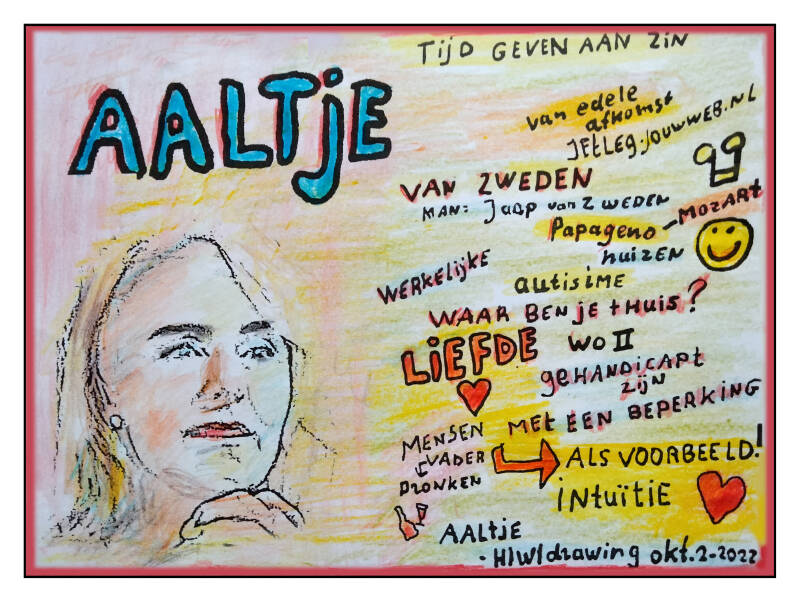 AALTjE
TijD GEVEN AAN ZiN
van edele
afkomst
JETLEG.JOUWWEB.NL
VAN ZWEDEN
MAN: Jaap van Zweden
Papageno - MOZART
huizen
WERKELIJKE
autisime
WAAR BEN je thuis?
LiEFDE WO II
geHANDiCAPt
ZijN
MENSEN MEt EEN BEPERKING
VADER
DRONKEN
ALS VOORBEELD!
iNtuïTiE
AALtje
- H/W/drawing okt.2-2022